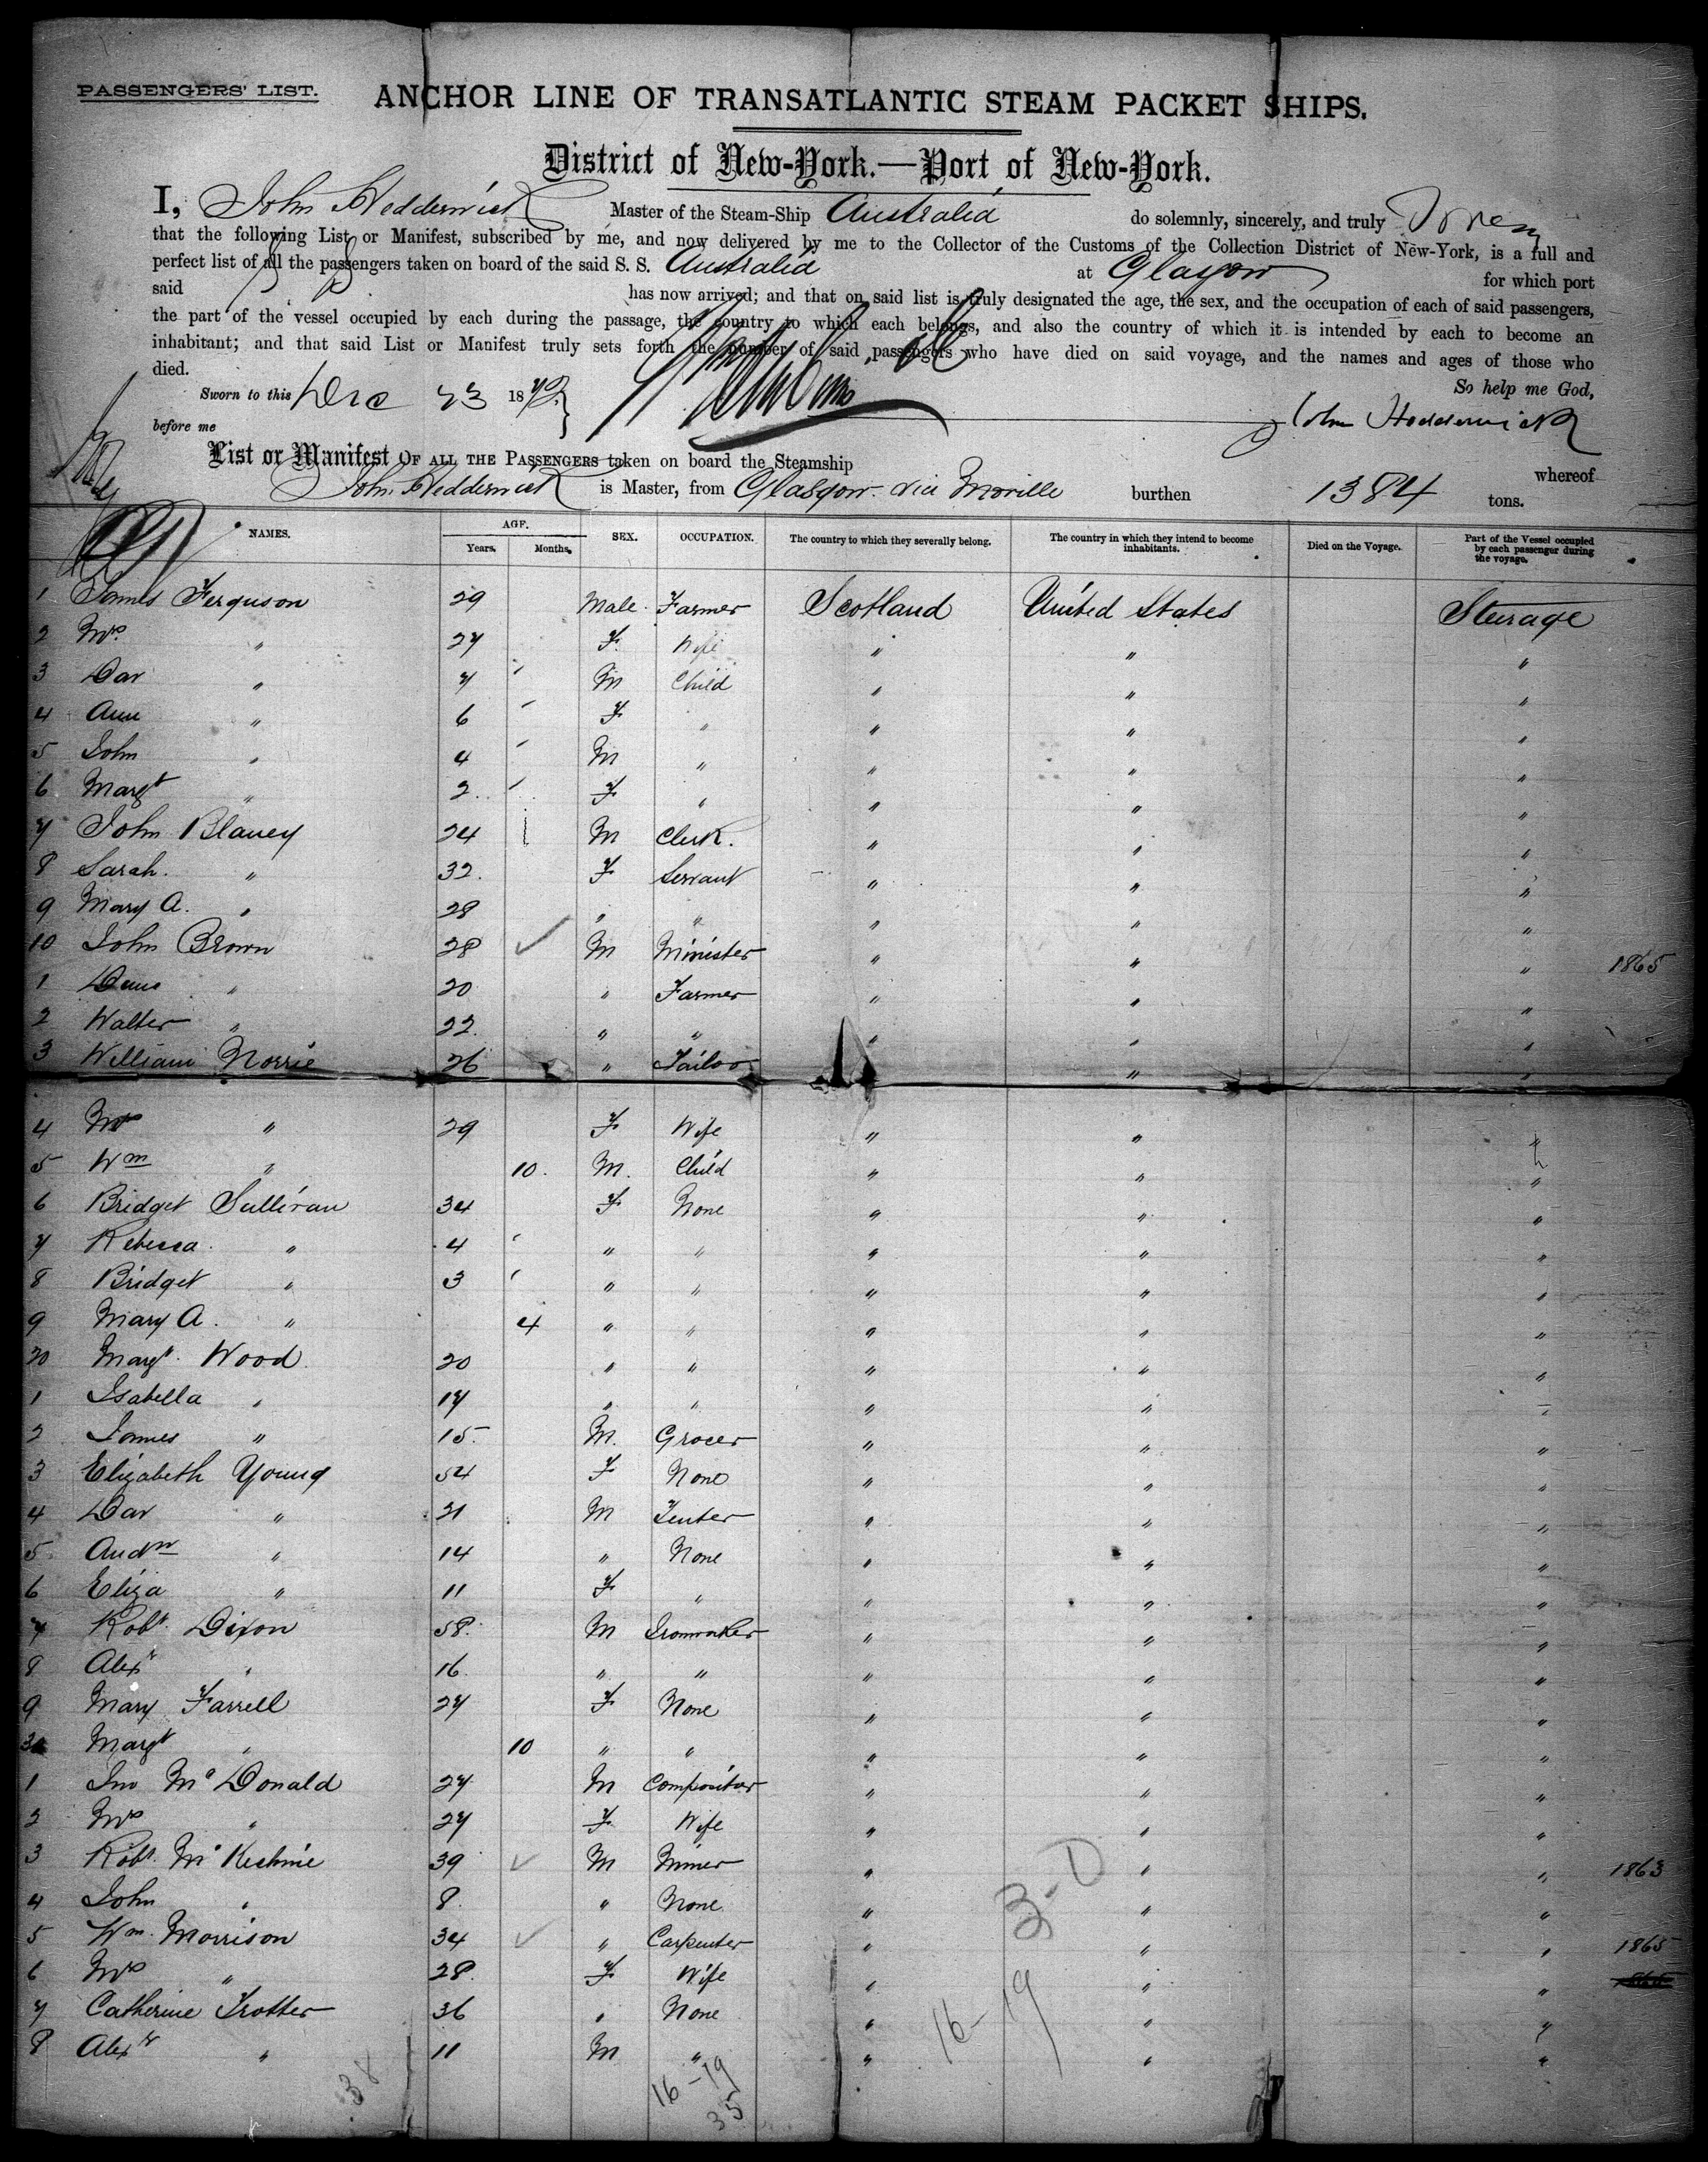 PASSENGERS' LIST.
ANCHOR LINE OF TRANSATLANTIC STEAM PACKET SHIPS.
District of New-York.—Port of New-York.
I, John Hedderwick Master of the Steam-Ship Australia do solemnly, sincerely, and truly
that the following List or Manifest, subscribed by me, and now delivered by me to the Collector of the Customs of the Collection District of New-York, is a full and
perfect list of all the passengers taken on board of the said S. S. Australia at Glasgow for which port
said has now arrived; and that on said list is truly designated the age, the sex, and the occupation of each of said passengers,
the part of the vessel occupied by each during the passage, the country to which each belongs, and also the country of which it is intended by each to become an
inhabitant; and that said List or Manifest truly sets forth the number of said passengers who have died on said voyage, and the names and ages of those who
died.
So help me God,
Sworn to this Dec 23 1872
John Hedderwick
before me
List or Manifest OF ALL THE PASSENGERS taken on board the Steamship whereof
John Hedderwick is Master, from Glasgow via Moville burthen 1384 tons.
NAMES. AGE. Years. Months. SEX. OCCUPATION. The country to which they severally belong. The country in which they intend to become inhabitants. Died on the Voyage. Part of the Vessel occupied by each passenger during the voyage.
1 James Ferguson 29 Male Farmer Scotland United States Steerage
2 Mrs " 27 F Wife " " "
3 Dav " 7 M Child " " "
4 Ann " 6 F " " " "
5 John " 4 M " " " "
6 Margt " 2 F " " " "
7 John Blaney 24 M Clerk. " " "
8 Sarah " 32 F Servant " " "
9 Mary A. " 28 " " " " "
10 John Brown 28 M Minister " " " 1865
1 " 20 " Farmer " " "
2 Walter " 22 " " " " "
3 William Norrie 26 " Tailor " " "
4 Mrs " 29 F Wife " " "
5 Wm " 10 M. Child " " "
6 Bridget Sullivan 34 F None " " "
7 Rebecca " 4 " " " " "
8 Bridget " 3 " " " " "
9 Mary A. " 4 " " " " "
20 Margt Wood 20 " " " " "
1 Isabella " 17 " " " " "
2 James " 15 M. Grocer " " "
3 Elizabeth Young 54 F None " " "
4 Dav " 21 M Tenter " " "
5 Andw " 14 " None " " "
6 Eliza " 11 F " " " "
7 Robt Dixon 58 M Ironworker " " "
8 Alexr " 16 " " " " "
9 Mary Farrell 27 F None " " "
30 Margt " 10 " " " " "
1 Jno McDonald 27 M Compositor " " "
2 Mrs " 27 F Wife " " "
3 Robt 39 M Miner " " " 1863
4 John " 8 " None " " "
5 Wm Morrison 34 " Carpenter " " " 1865
6 Mrs " 28 F Wife " " "
7 Catherine Trotter 36 " None " " "
8 Alexr " 11 M " " " "
3-0
16-19
38
16-19
35